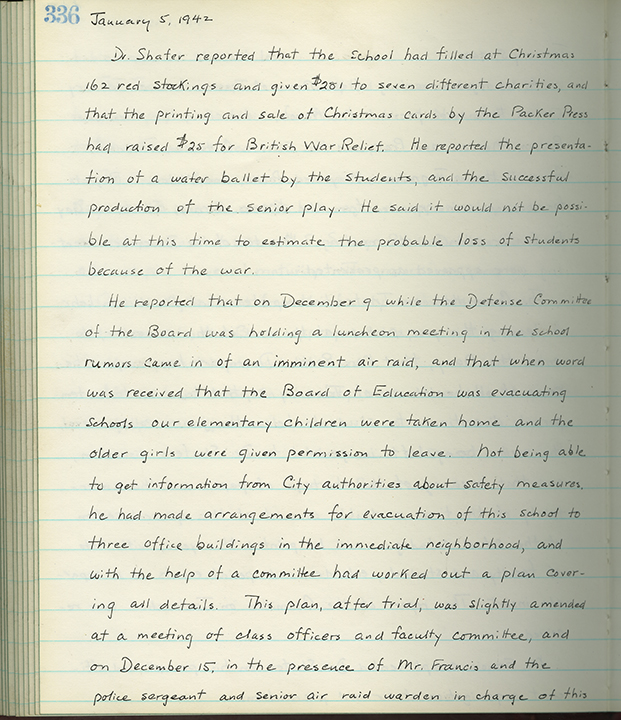 336 January 5, 1942
Dr. Shafer reported that the school had filled at Christmas
162 red stockings and given $281 to seven different charities, and
that the printing and sale of Christmas cards by the Packer Press
had raised $25 for British War Relief. He reported the presenta-
tion of a water ballet by the students, and the successful
production of the senior play. He said it would not be possi-
ble at this time to estimate the probable loss of students
because of the war.
He reported that on December 9 while the Defense Committee
of the Board was holding a luncheon meeting in the school
rumors came in of an imminent air raid, and that when word
was received that the Board of Education was evacuating
schools our elementary children were taken home and the
older girls were given permission to leave. Not being able
to get information from City authorities about safety measures,
he had made arrangements for evacuation of this school to
three office buildings in the immediate neighborhood, and
with the help of a committee had worked out a plan cover-
ing all details. This plan, after trial, was slightly amended
at a meeting of class officers and faculty committee, and
on December 15, in the presence of Mr. Francis and the
police sergeant and senior air raid warden in charge of this